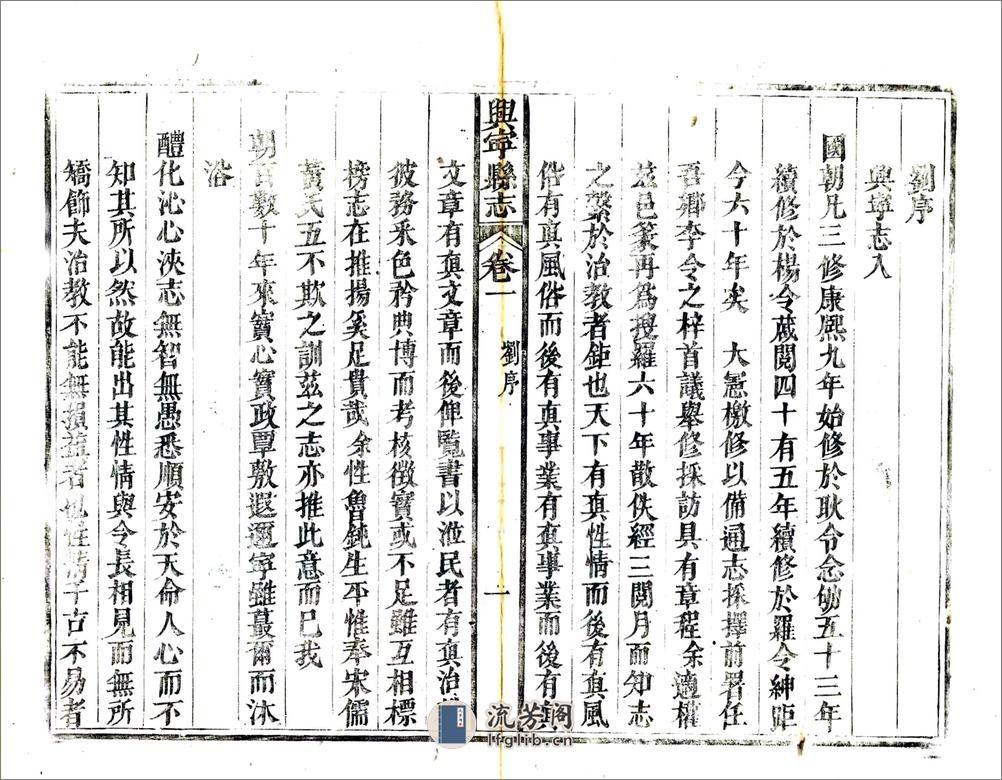 劉序
興寧志入
國朝凡三修康熙九年始修於耿令念劬五十三年
續修於楊令蕆閱四十有五年續修於羅令紳距
今六十年矣　大憲檄修以備通志採擇前署任
吾鄉李令之梓首議舉修採訪具有章程余適權
茲邑篆再為搜羅六十年散佚經三閱月而知志
之槩於治教者鉅也天下有眞性情而後有眞風
俗有眞風俗而後有眞事業有眞事業而後有眞
興寧縣志　卷一　劉序　一
文章有眞文章而後俾覽書以涖民者有眞治
彼務釆色矜典博而考核徵實或不足雖互相標
榜志在推揚奚足貴哉余性魯鈍生平惟奉宋儒
黃氏五不欺之訓茲之志亦推此意而已我
朝百數十年來實心實政覃敷遐邇寧雖蕞爾而沐
浴
醲化沁心浹志無智無愚悉順安於天命人心而不
知其所以然故能出其性情與令長相見而無所
矯飾夫治教不能無損益者也性情千古不易者
流芳閣
lfglib.cn